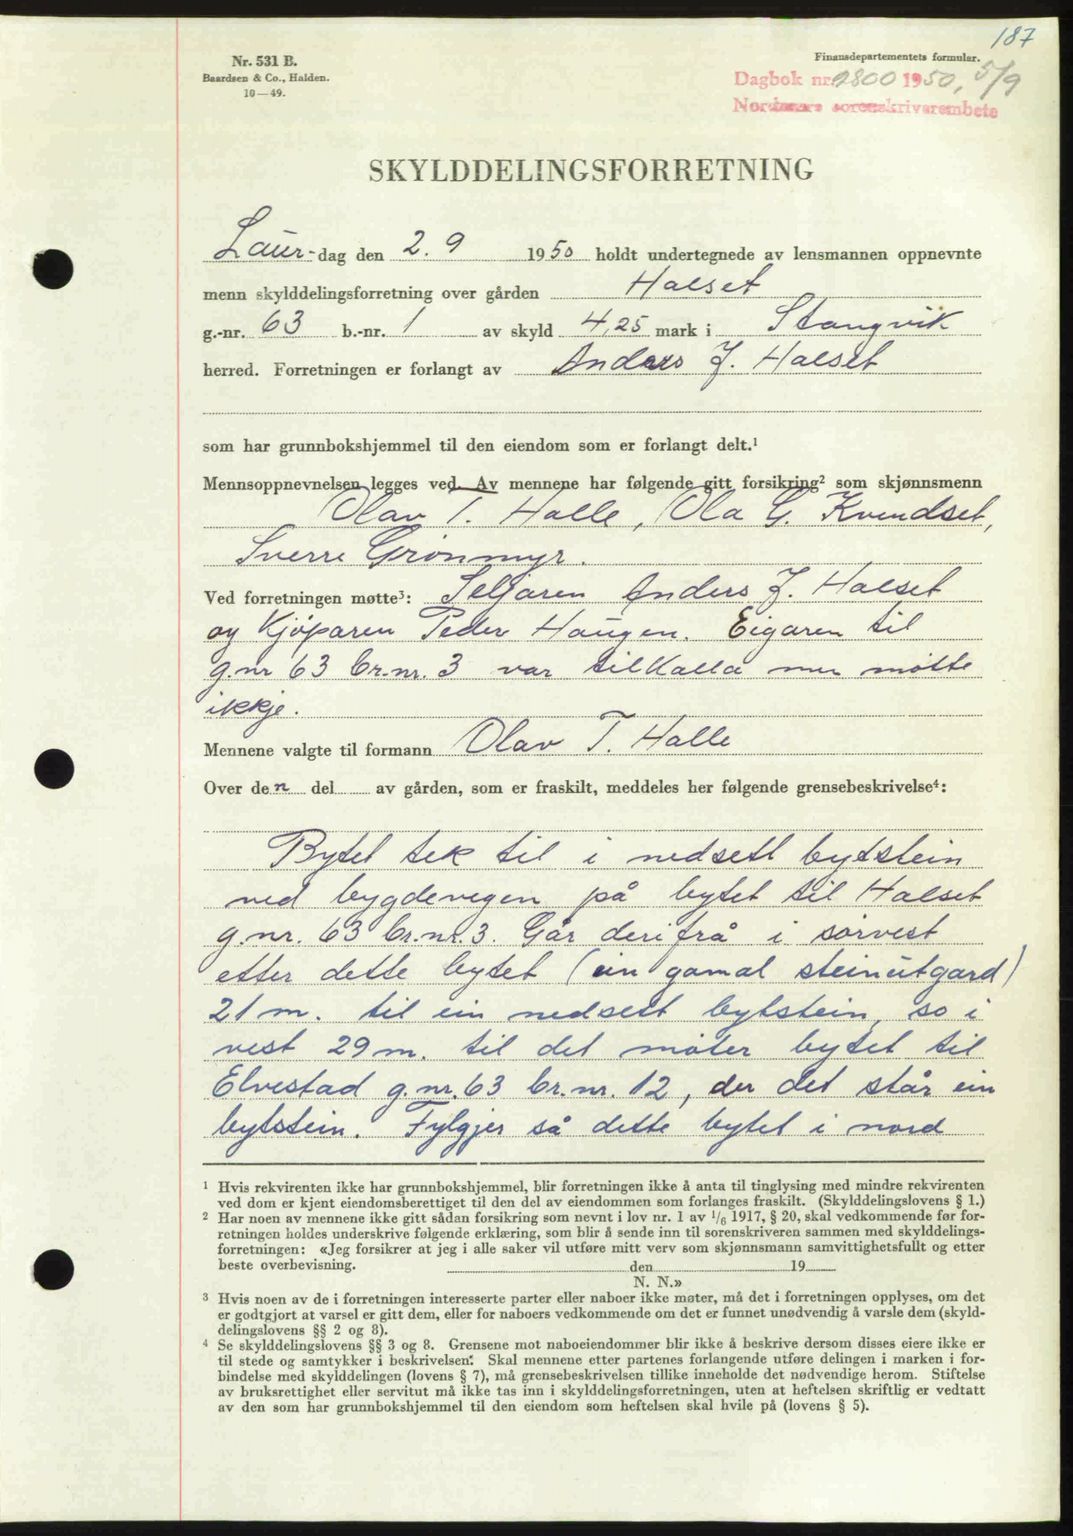 187
Nr. 531 B.
Baardsen & Co., Halden.
10—49.
Finansdepartementets formular.
Dagbok nr. 2800 1950, 5/9
Nordmøre sorenskriverembete
SKYLDDELINGSFORRETNING
Laur-dag den 2. 9 1950 holdt undertegnede av lensmannen oppnevnte
menn skylddelingsforretning over gården Halset
g.-nr. 63 b.-nr. 1 av skyld 4,25 mark i Stangvik
herred. Forretningen er forlangt av Anders J. Halset
som har grunnbokshjemmel til den eiendom som er forlangt delt.¹
Mennsoppnevnelsen legges ved. Av mennene har følgende gitt forsikring² som skjønnsmenn
Olav T. Halle, Ola G. Kvendset,
Sverre Grønmyr.
Ved forretningen møtte³: Seljaren Anders J. Halset
og Kjøparen Peder Haugen. Eigaren til
g.nr 63 br.nr. 3 var tilkalla men møtte
ikkje.
Mennene valgte til formann Olav T. Halle
Over den del av gården, som er fraskilt, meddeles her følgende grensebeskrivelse⁴:
Bytet tek til i nedsett bytstein
ved bygdevegen på bytet til Halset
g.nr. 63 br.nr. 3. Går derifrå i sørvest
etter dette bytet (ein gamal steinutgard)
21 m. til ein nedsett bytstein, so i
vest 29 m. til det møter bytet til
Elvestad g.nr. 63 br.nr. 12, der det står ein
bytstein. Fylgjer så dette bytet i nord
¹ Hvis rekvirenten ikke har grunnbokshjemmel, blir forretningen ikke å anta til tinglysing med mindre rekvirenten
ved dom er kjent eiendomsberettiget til den del av eiendommen som forlanges fraskilt. (Skylddelingslovens § 1.)
² Har noen av mennene ikke gitt sådan forsikring som nevnt i lov nr. 1 av 1/6 1917, § 20, skal vedkommende før for-
retningen holdes underskrive følgende erklæring, som blir å sende inn til sorenskriveren sammen med skylddelings-
forretningen: «Jeg forsikrer at jeg i alle saker vil utføre mitt verv som skjønnsmann samvittighetsfullt og etter
beste overbevisning. den 19
N. N.»
³ Hvis noen av de i forretningen interesserte parter eller naboer ikke møter, må det i forretningen opplyses, om det
er godtgjort at varsel er gitt dem, eller for naboers vedkommende om det er funnet unødvendig å varsle dem (skyld-
delingslovens §§ 2 og 8).
⁴ Se skylddelingslovens §§ 3 og 8. Grensene mot naboeiendommer blir ikke å beskrive dersom disses eiere ikke er
til stede og samtykker i beskrivelsen. Skal mennene etter partenes forlangende utføre delingen i marken i for-
bindelse med skylddelingen (lovens § 7), må grensebeskrivelsen tillike inneholde det nødvendige herom. Stiftelse
av bruksrettighet eller servitut må ikke tas inn i skylddelingsforretningen, uten at heftelsen skriftlig er vedtatt
av den som har grunnbokshjemmel til den eiendom som heftelsen skal hvile på (lovens § 5).